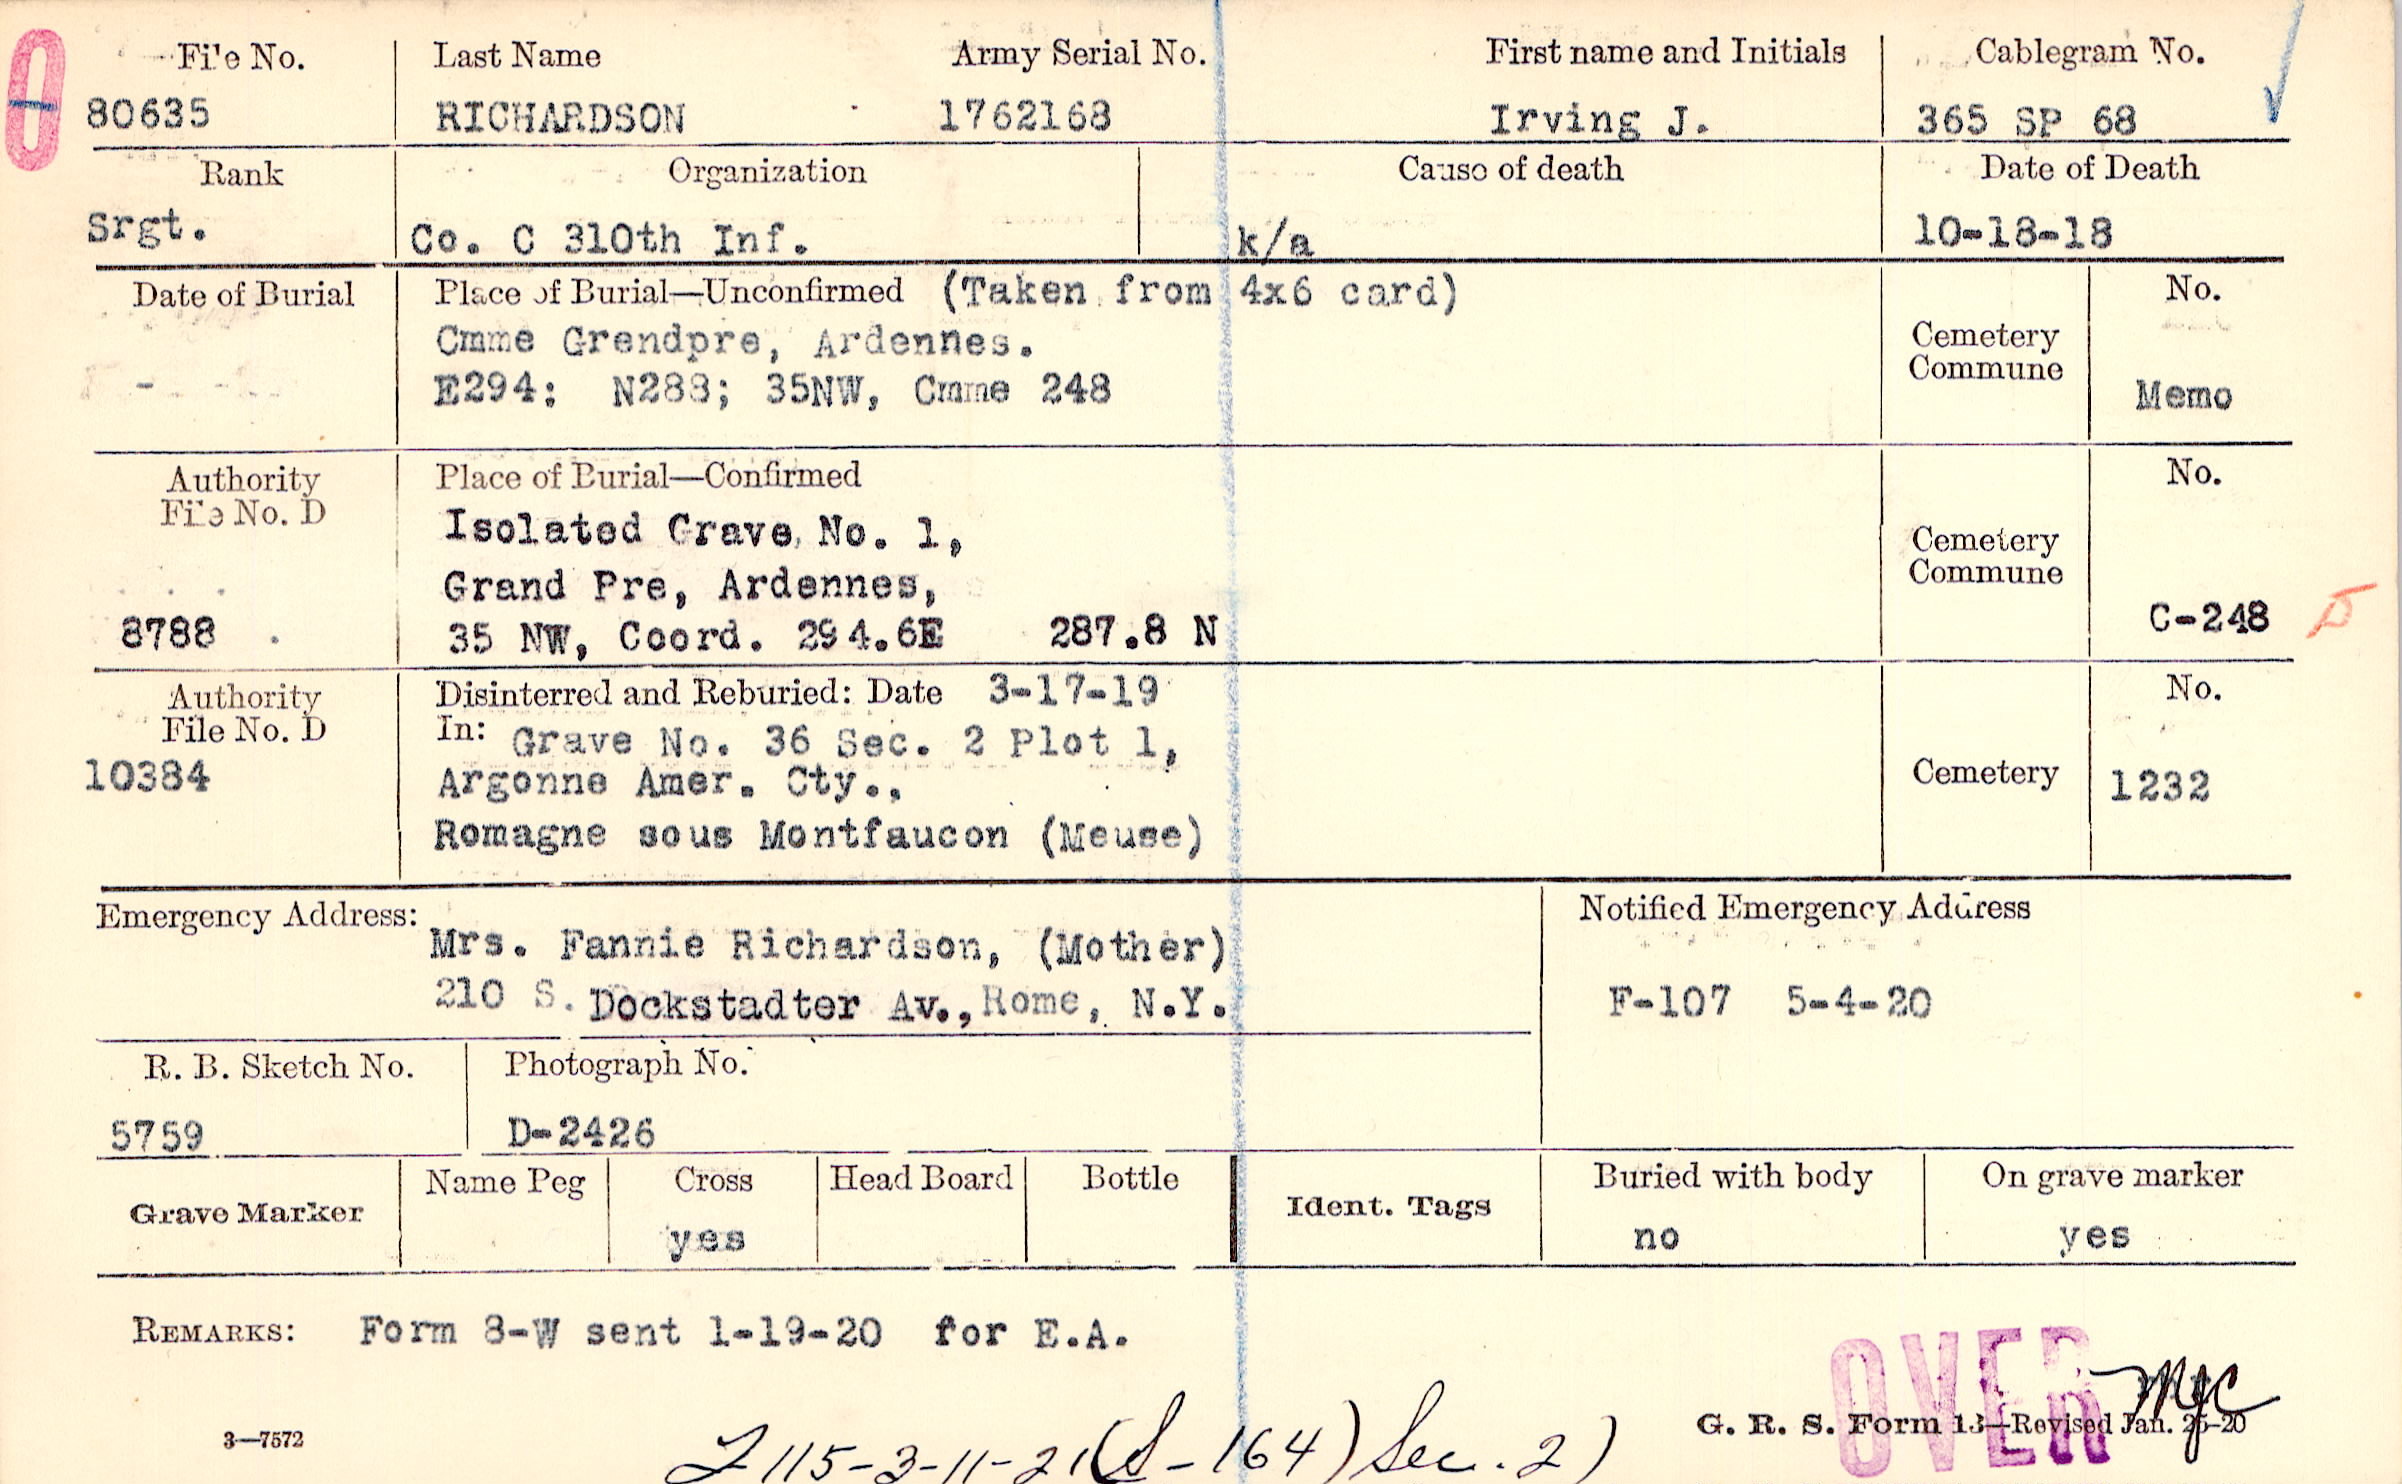 File No. Last Name Army Serial No. First name and Initials Cablegram No.
80635 RICHARDSON 1762168 Irving J. 365 SP 68
Rank Organization Cause of death Date of Death
Srgt. Co. C 310th Inf. k/a 10-18-18
Date of Burial Place of Burial—Unconfirmed (Taken from 4x6 card) No.
Cmme Grendpre, Ardennes. Cemetery
Commune
E294: N288; 35NW, Cmme 248 Memo
Authority Place of Burial—Confirmed No.
File No. D
Isolated Grave No. 1, Cemetery
Grand Pre, Ardennes, Commune
8788 35 NW, Coord. 294.6E 287.8 N C-248
Authority Disinterred and Reburied: Date 3-17-19 No.
File No. D In: Grave No. 36 Sec. 2 Plot 1,
10384 Argonne Amer. Cty., Cemetery 1232
Romagne sous Montfaucon (Meuse)
Emergency Address: Notified Emergency Address
Mrs. Fannie Richardson, (Mother)
210 S. Dockstadter Av., Rome, N.Y. F-107 5-4-20
R. B. Sketch No. Photograph No.
5759 D-2426
Grave Marker Name Peg Cross Head Board Bottle Ident. Tags Buried with body On grave marker
yes no yes
REMARKS: Form 8-W sent 1-19-20 for E.A.
OVER
G. R. S. Form 13—Revised Jan. 25-20
3—7572
115-3-11-21 (S-164) Sec. 2)